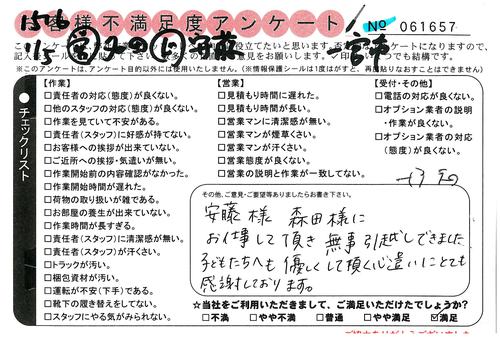 お客様不満足度アンケート
No 061657
1576
115
安藤
記入
※このアンケートは、アンケート目的以外には使用いたしません。(※情報保護シールは1度はがすと、再度貼りなおすことはできません)
チェックリスト
【作業】
□責任者の対応(態度)が良くない。
□他のスタッフの対応(態度)が良くない。
□作業を見ていて不安がある。
□責任者(スタッフ)に好感が持てない。
□お客様への挨拶が出来ていない。
□ご近所への挨拶・気遣いが無い。
□作業開始前の内容確認がなかった。
□作業開始時間が遅れた。
□荷物の取り扱いが雑である。
□お部屋の養生が出来ていない。
□作業時間が長すぎる。
□責任者(スタッフ)に清潔感が無い。
□責任者(スタッフ)が汗くさい。
□トラックが汚い。
□梱包資材が汚い。
□運転が不安(下手)である。
□靴下の履き替えをしてない。
□スタッフにやる気がみられない。
【営業】
□見積もり時間に遅れた。
□見積もり時間が長い。
□営業マンに清潔感が無い。
□営業マンが煙草くさい。
□営業マンが汗くさい。
□営業態度が良くない。
□営業の説明と作業が一致してない。
【受付・その他】
□電話の対応が良くない。
□オプション業者の説明
・作業が良くない。
□オプション業者の対応
(態度)が良くない。
その他、ご意見・ご要望等ありましたらお書き下さい。
安藤様 森田様に
お仕事して頂き 無事引越しできました
子どもたちへも優しくして頂く心遣いにとても
感謝しております。
☆当社をご利用いただきまして、ご満足いただけたでしょうか?
□不満 □やや不満 □普通 □やや満足 ☑満足